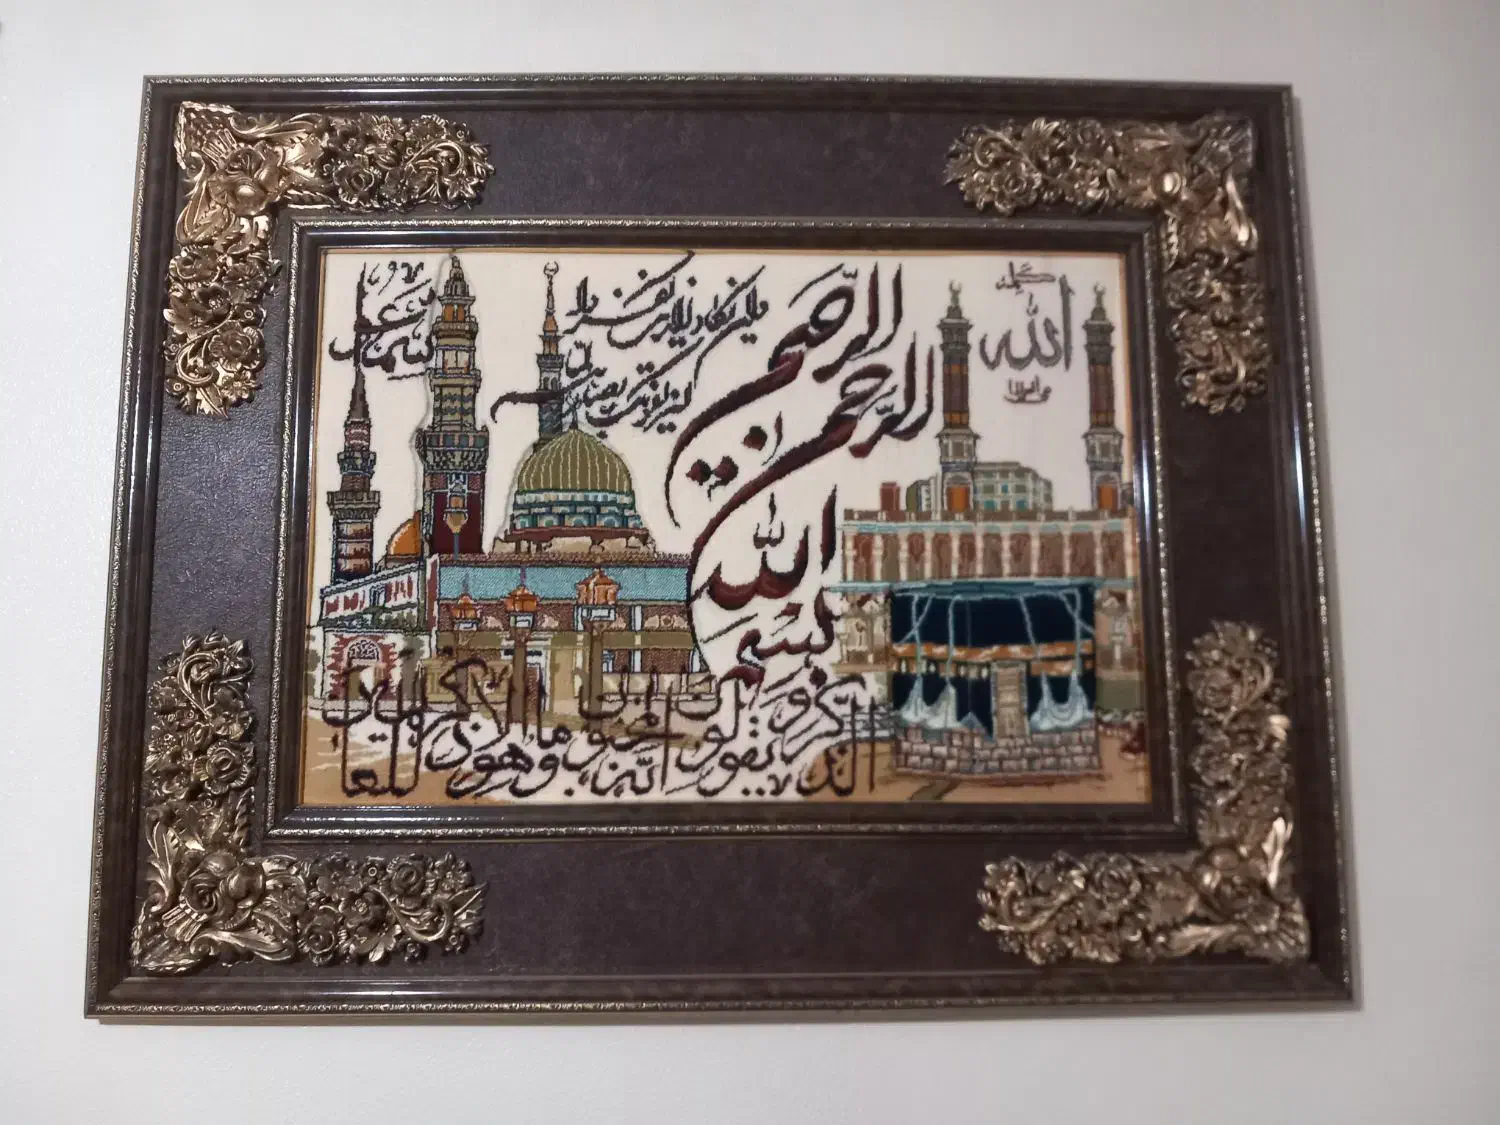 الله
بسم الله الرحمن الرحیم
وان یکاد الذین کفروا
لیزلقونک بابصارهم لما
سمعوا
الذکر و یقولون انه لمجنون و ما هو الا ذکر للعالمین